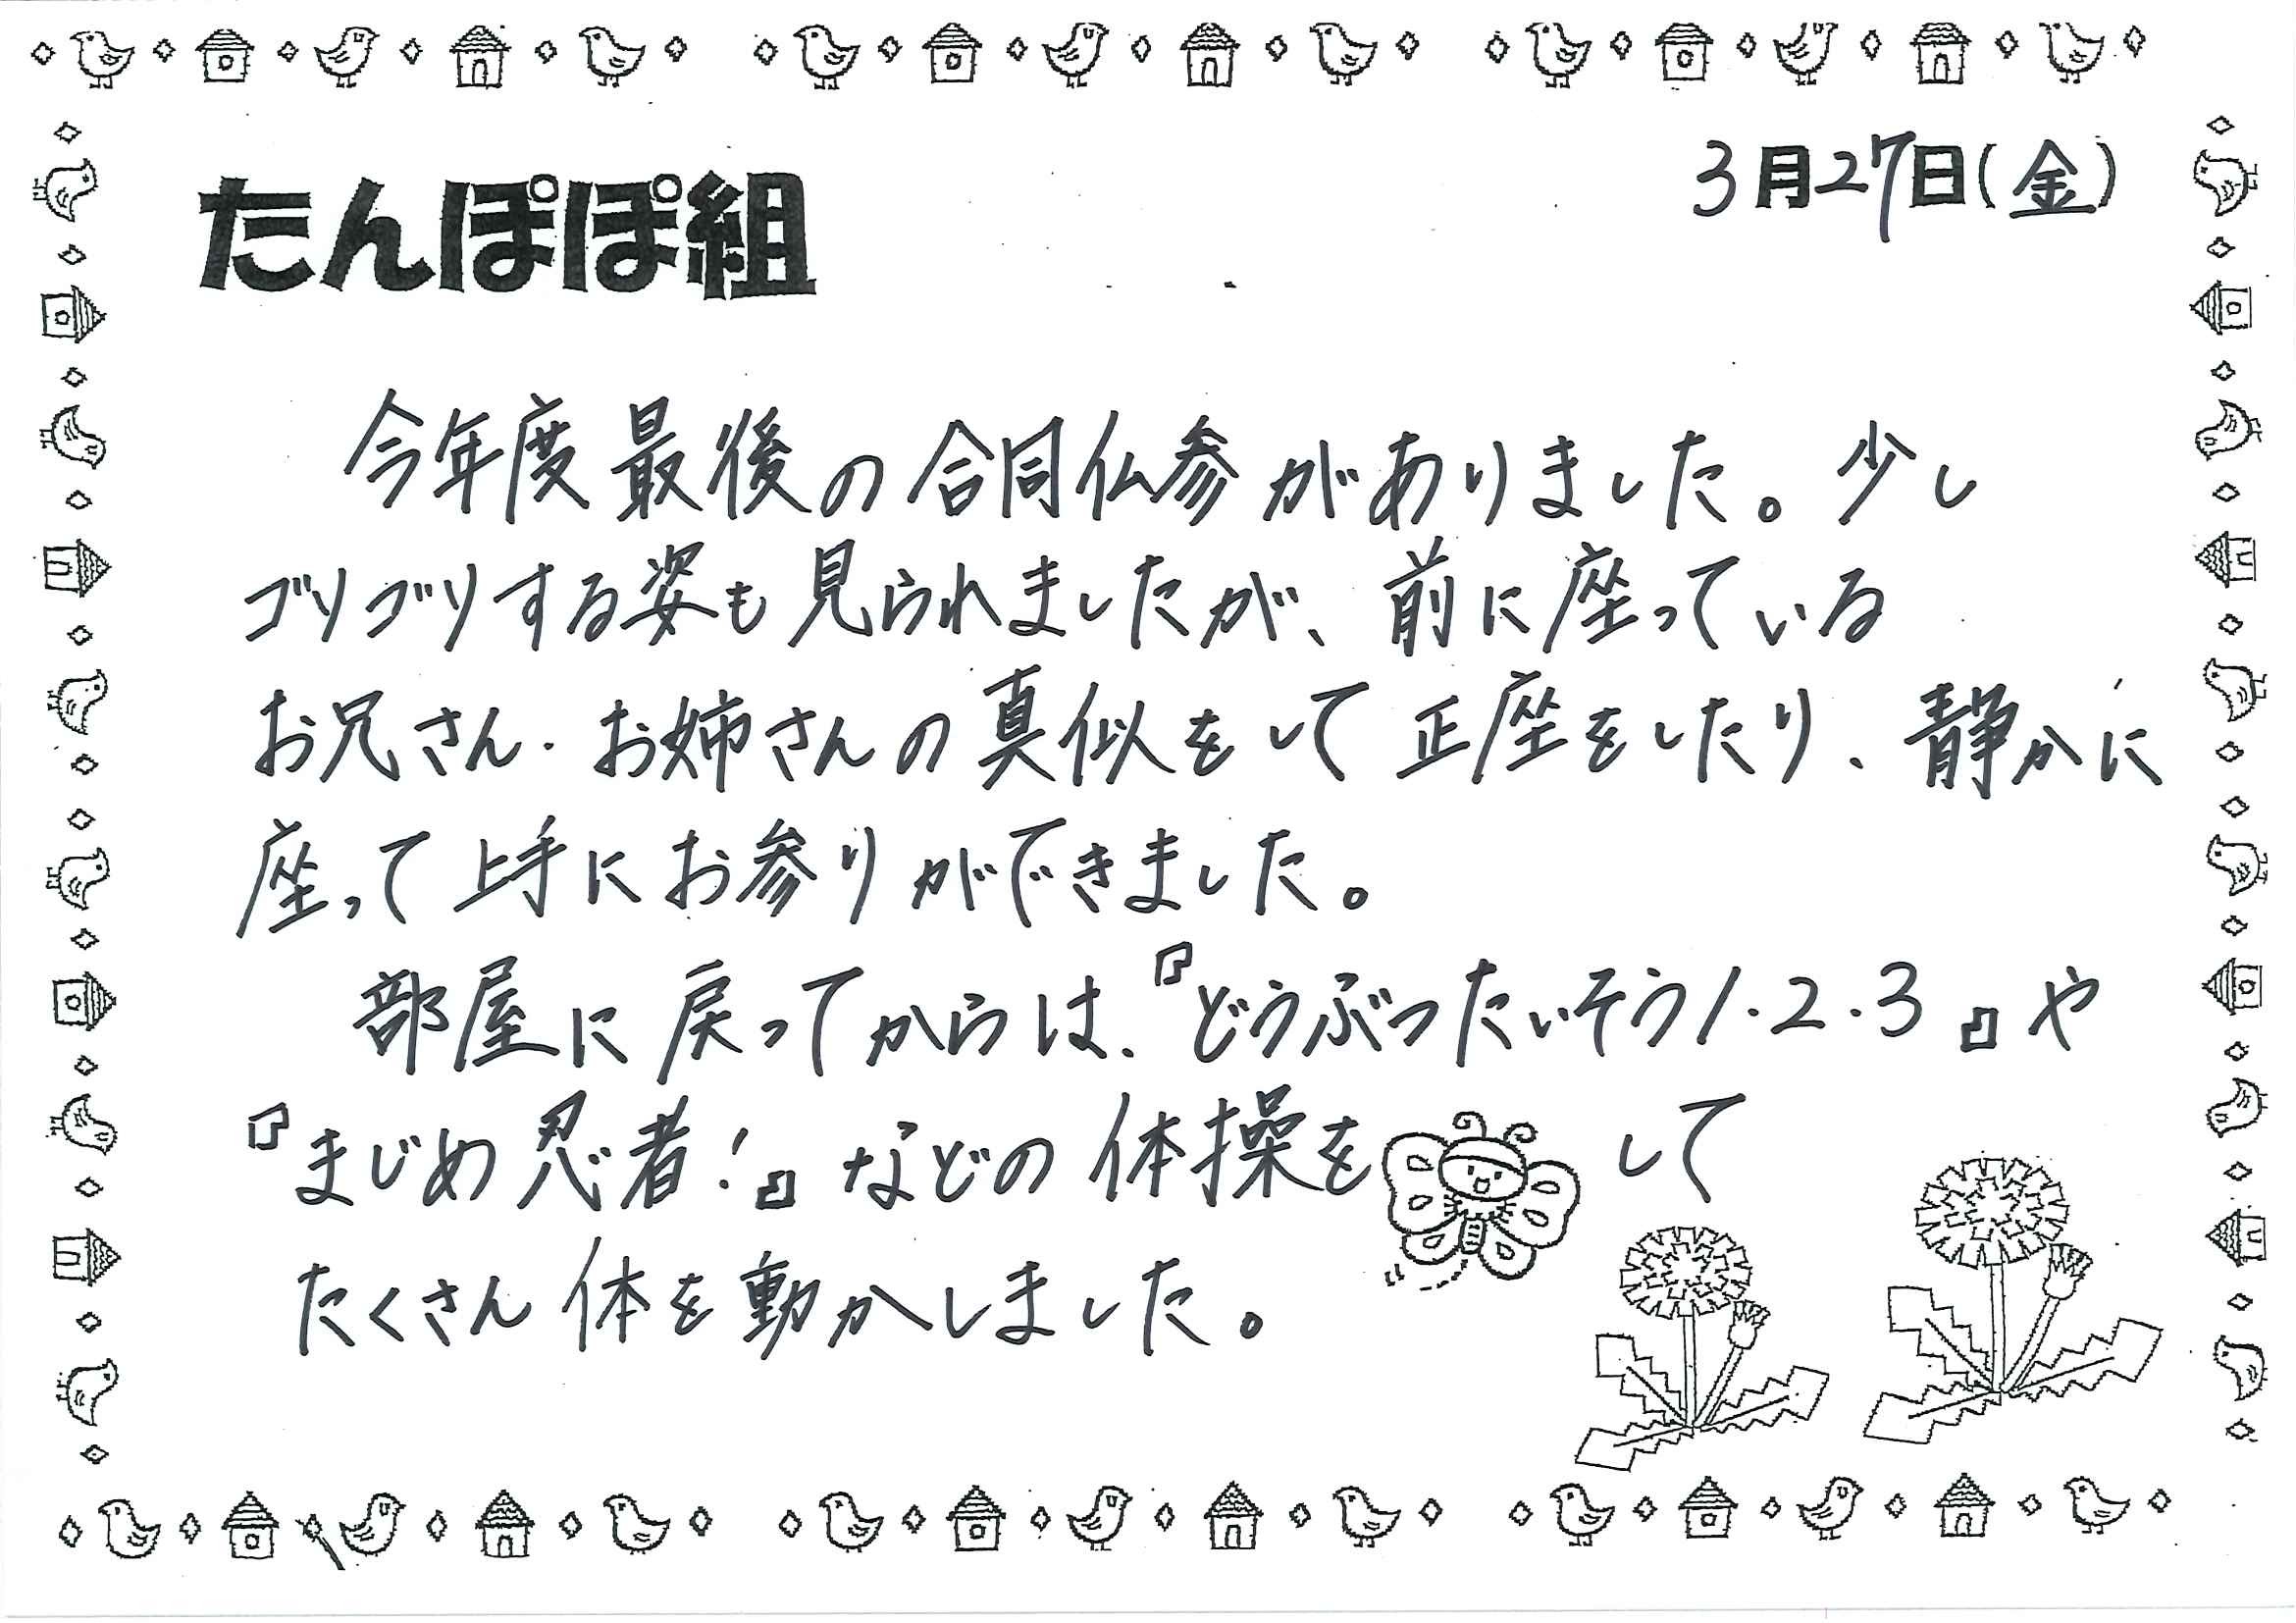 3月27日(金)
たんぽぽ組
今年度最後の合同仏参がありました。少し
ゴソゴソする姿も見られましたが、前に座っている
お兄さん・お姉さんの真似をして正座をしたり、静かに
座って上手にお参りができました。
部屋に戻ってからは、『どうぶつたいそう1・2・3』や
『まじめ忍者!』などの体操をして
たくさん体を動かしました。